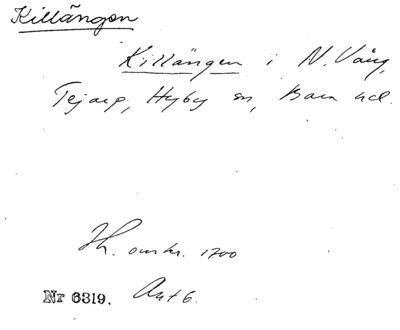 Killängen
Killängen i N. Vång,
Tejarp, Hyby sn, Bara hd.
Th. omkr. 1700
Nr 6319. Akt 6.